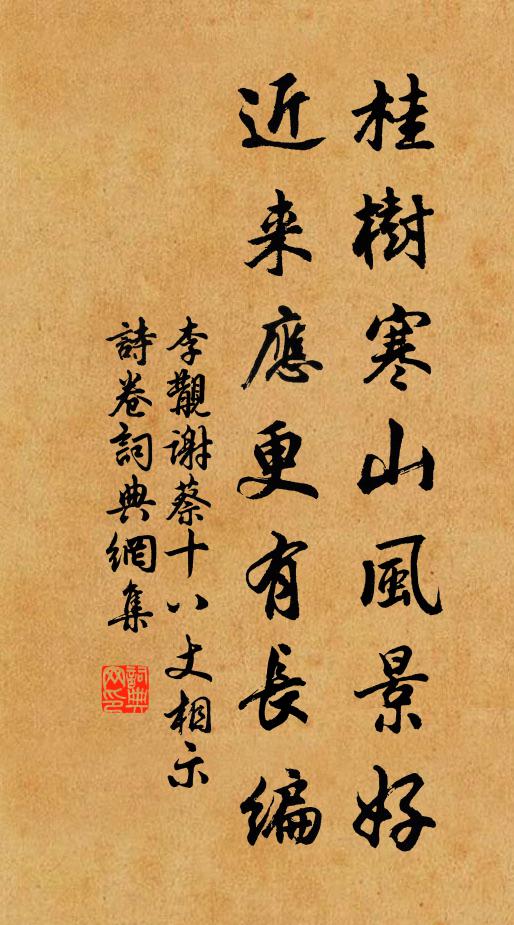 桂樹寒山風景好
近来應更有長編
李觀謝蔡十八丈相示
詩卷詞典網集
詞典
网印